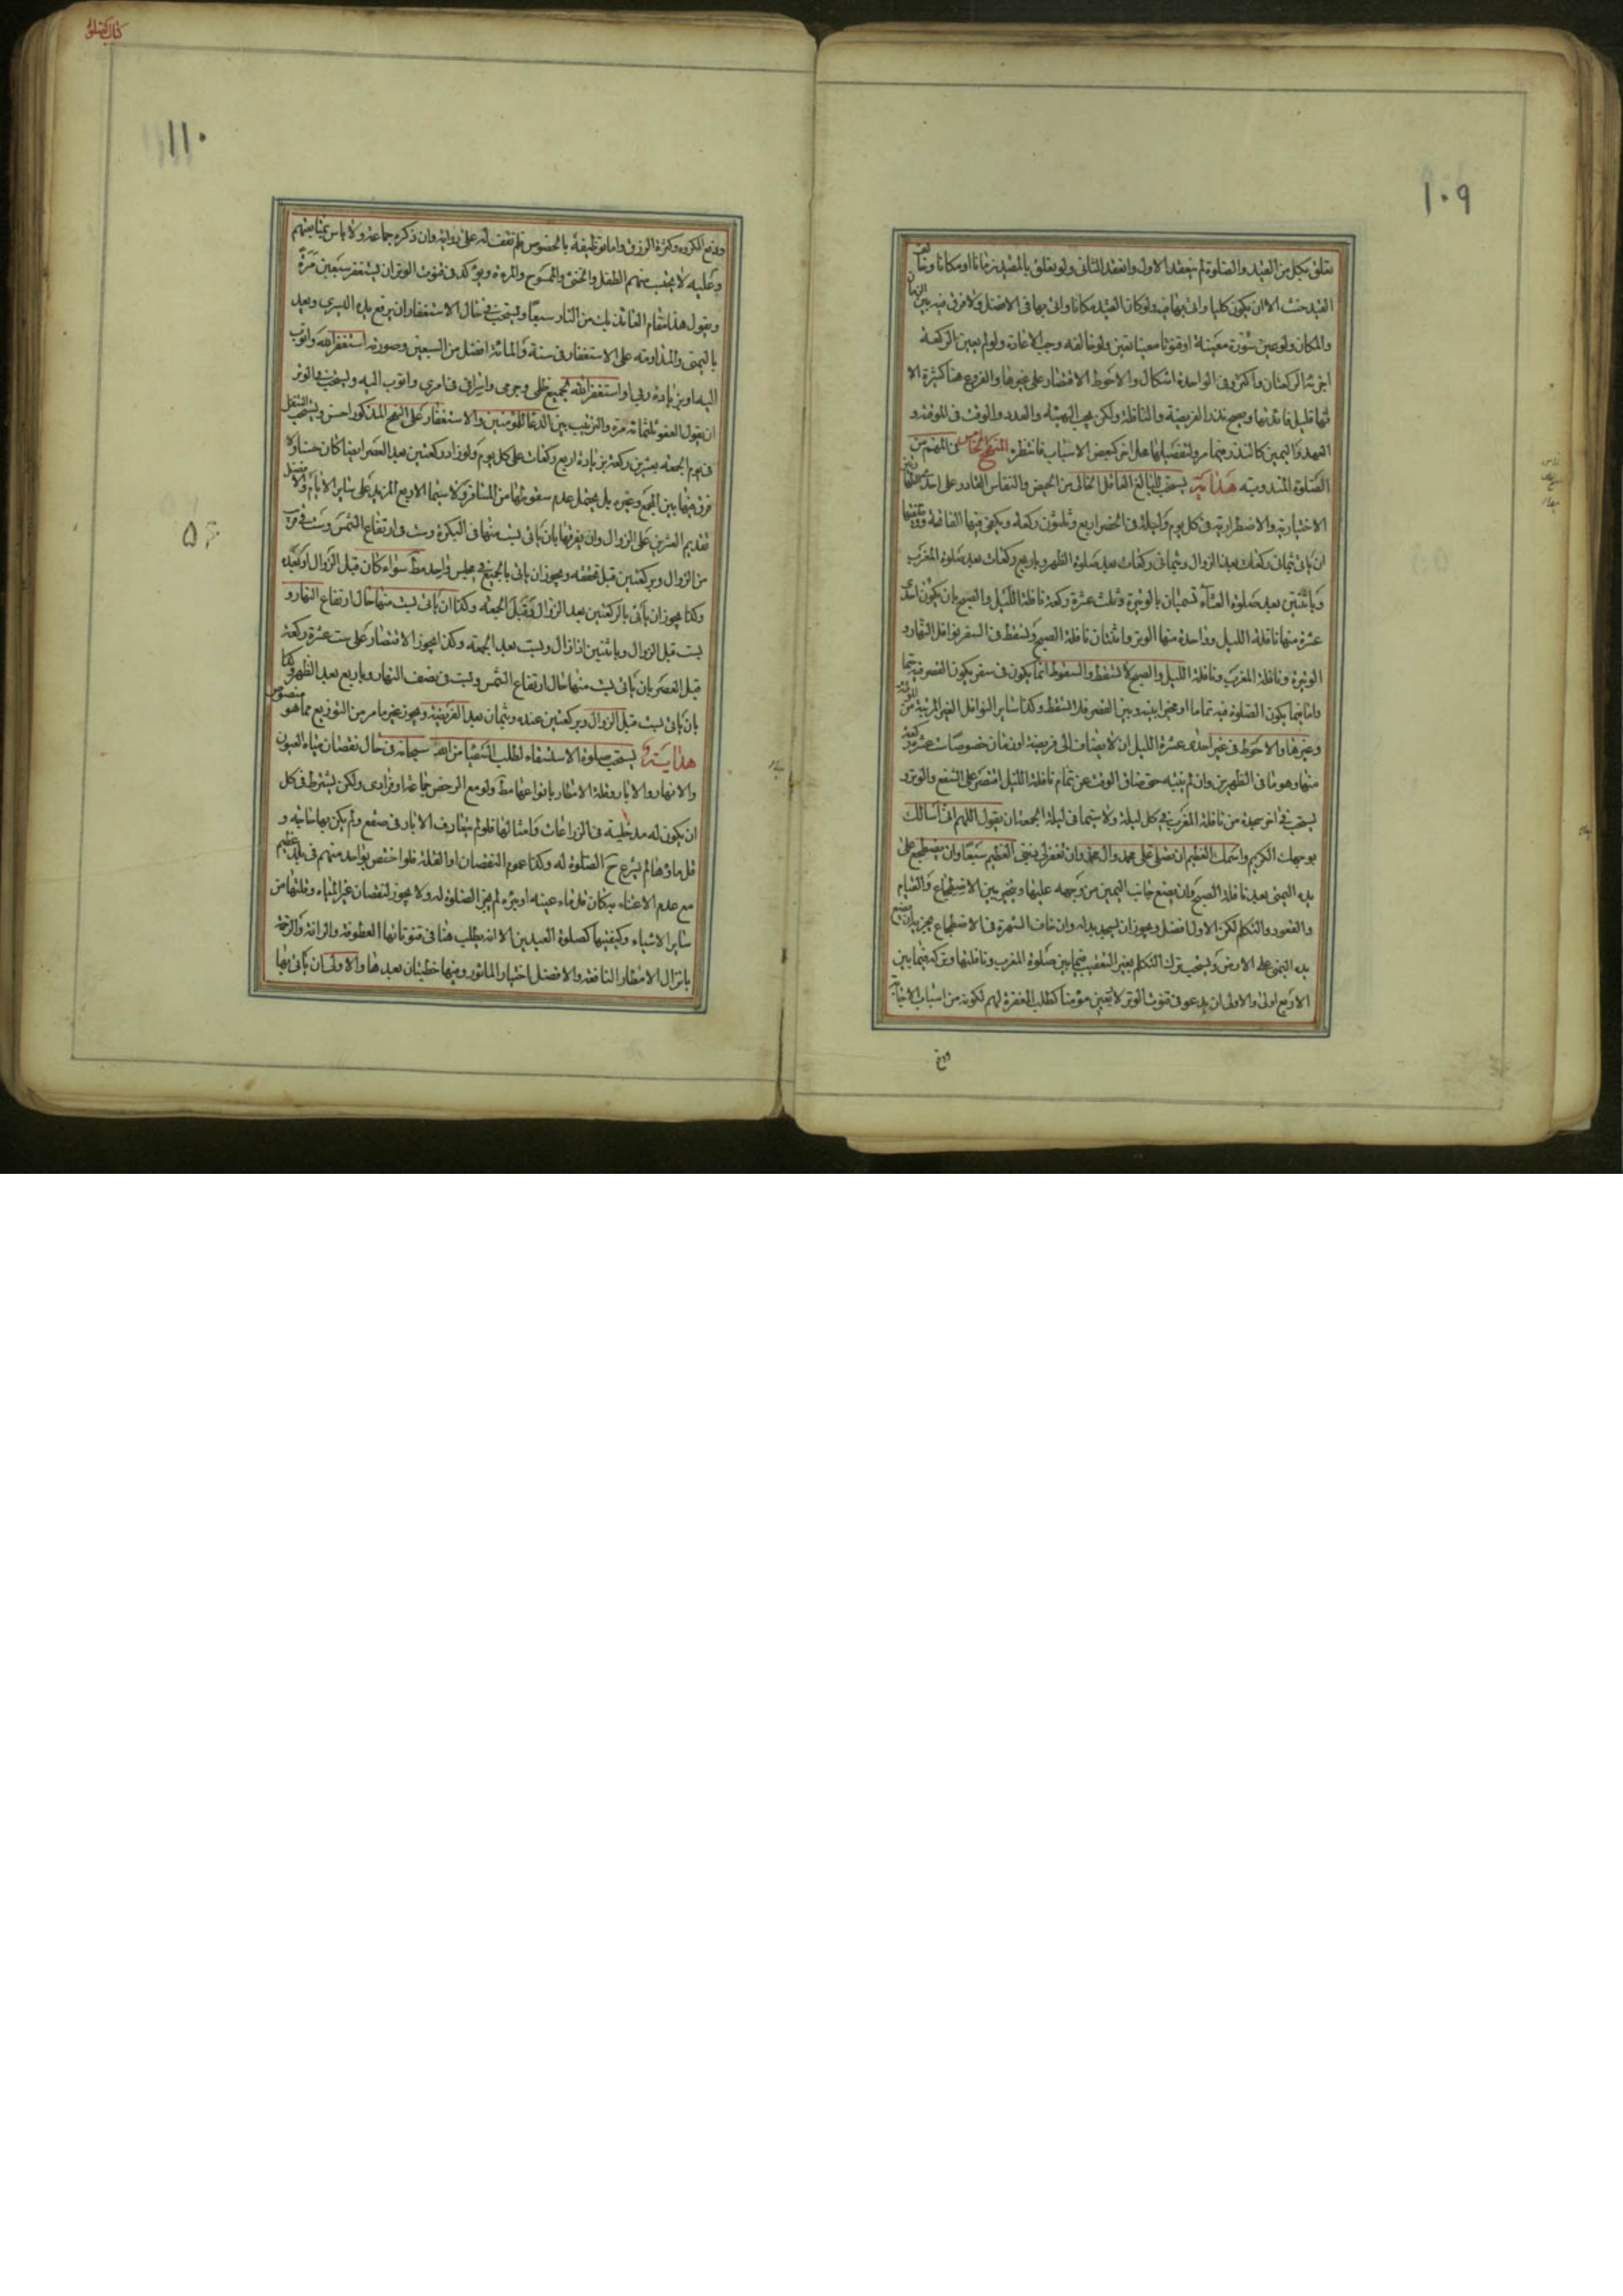 ١٠٩
تعلق بكل من القيد والصلوة لم ينعقد الاول وانعقد الثانى ولو تعلق بالمقيد زمانا او مكانا وخالف
القيد حنث الا ان يكون كليا واتى بها فيه ولو كان القيد مكانا واتى بها فى الافضل ولا فرق فيه بين الزمان
والمكان ولو عين سورة معينة او قنوتا معينا تعين ولو خالفه وجب الاعادة ولو لم يعين الركعة
اجزئه الركعتان فاكثر وفى الواحدة اشكال والاحوط الاقتصار على غيرها والفروع هنا كثيرة الا
انها قليل فائدتها ويصح نذر الفريضة والنافلة ولكن يجب الهيئة والعدد والوقت فى الموقتة و
العهد واليمين كالنذر فيما مر ولتفضيلها محل اخر كبعض الاسباب فانتظره المنهج الخامس فى المهم من
الصلوة المندوبة هداية يستحب للبالغ العاقل الخالى من الحيض والنفاس القادر على احدى
الاختيارية والاضطرارية فى كل يوم وليلة فى الحضر اربع وثلثون ركعة ويكفى فيها الفاتحة
ان ياتى بثمان ركعات بعد الزوال وثمانى ركعات بعد صلوة الظهر وباربع ركعات بعد صلوة المغرب
وباثنتين بعد صلوة العشآء تسميان بالوتيرة وثلث عشرة ركعة نافلة الليل والصبح بان يكون احدى
عشرة منها نافلة الليل وواحدة منها الوتر واثنتان نافلة الصبح وتسقط فى السفر نوافل النهار و
الوتيرة ونافلة المغرب ونافلة الليل والصبح لا تسقط والسقوط انما يكون فى سفر يكون القصر فيه حتما
واما فيما يكون الصلوة فيه تماما او مخيرا بينه وبين القصر فلا تسقط وكذا ساير النوافل الغير المرتبة من الموقتة
وغيرها والاحوط فى غير احدى عشرة الليل ان لا يضاف الى فريضة اذ فى ثمان خصوصيات عشر ركعة
منها وهو ما فى الظهرين وان لم ينبه حتى ضاق الوقت عن تمام نافلة الليل اقتصر على الشفع والوتر و
يستحب فى اخر سجدة من نافلة المغرب فى كل ليلة ولا سيما فى ليلة الجمعة ان يقول اللهم انى اسالك
بوجهك الكريم واسمك العظيم ان تصلى على محمد وال محمد وان تغفر لى ذنبى العظيم سبعا وان يضطجع على
يده اليمنى بعد نافلة الصبح وان يضع جانب اليمين من وجهه عليها ويتخير بين الاضطجاع والقيام
والقعود والتكلم لكن الاول افضل ويجوز ان يسجد بدله وان خاف الشهرة فى الاضطجاع يجزيه ان يضع
يده اليمنى على الارض ويستحب ترك التكلم بغير التعقيب فيما بين صلوة المغرب ونافلتها وتركه فيما بين
الاربع اولى والاولى ان يدعو فى قنوت الوتر لاربعين مؤمنا كطلب المغفرة لهم لكونه من اسباب الاجابة
ودفع
كتاب الصلوة
١١٠
ودفع المكروه وكثرة الرزق واما توظيفه بالخصوص فلم نقف له على رواية وان ذكره جماعة ولا باس بمتابعتهم
وعليه لا يحتسب منهم الطفل والخنثى والممسوح والمرءة ويؤكد فى قنوت الوتر ان يستغفر سبعين مرة
ويقول هذا مقام العائذ بك من النار سبعا ويستحب فى حال الاستغفار ان يرفع يده اليسرى ويعد
باليمنى والمداومة على الاستغفار فى سنة والمائة افضل من السبعين وصورته استغفر الله واتوب
اليه او بزيادة ربى او استغفر الله لجميع ظلمى وجرمى واسرافى فى امرى واتوب اليه ويستحب فى الوتر
ان يقول العفو ثلثمائة مرة والترتيب بين الدعا للمؤمنين والاستغفار على النهج المذكور احسن ويستحب التنفل
فى يوم الجمعة بعشرين ركعة بزيادة اربع ركعات على كل يوم ولو زاد ركعتين بعد العصر ايضا كان حسنا ولا
فرق فيها بين الجمع وغيره بل يحتمل عدم سقوطها من المسافر ولا سيما الاربع المزيد على ساير الايام والافضل
تقديم العشرين على الزوال وان يفرقها بان ياتى بست منها فى البكرة وست فى ارتفاع الشمس وست فى قرب
من الزوال وبركعتين قبل تحققه ويجوز ان ياتى بالجميع فى مجلس واحد مط سواء كان قبل الزوال او بعده
وكذا يجوز ان ياتى بالركعتين بعد الزوال وقبل الجمعة وكذا ان ياتى بست منها حال ارتفاع النهار و
بست قبل الزوال وباثنتين اذا زال وبست بعد الجمعة وكذا يجوز الاقتصار على ست عشرة ركعة
قبل العصر بان ياتى بست منها حال ارتفاع الشمس وبست فى نصف النهار وباربع بعد الظهر وكذا
بان ياتى بست قبل الزوال وبركعتين عنده وبثمان بعد الفريضة ويجوز غير ما مر من التوزيع مما هو منصوص
هداية يستحب صلوة الاستسقاء لطلب السقيا من الله سبحانه فى حال نقصان مياه العيون
والانهار والابار وقلة الامطار بانواعها مط ولو مع الرخص جماعة او فرادى ولكن يشترط فى كل
ان يكون له مدخلية فى الزراعات وامثالها فلو لم يتعارف الابار فى صقع ولم يكن بها حاجة و
قل ماؤها لم يشرع ح الصلوة له وكذا عموم النقصان او القلة فلو اختص بواحد منهم فى بلد عظيم
مع عدم الاعتناء بمكان قل ماء عينه او بئره لم يجز الصلوة له ولا يجوز لنقصان غير المياه وقلتها من
ساير الاشياء وكيفيتها كصلوة العيدين الا انه يطلب هنا فى قنوتاتها العطوفة والرافة والرحمة
بانزال الامطار النافعة والافضل اختيار الماثور وفيها خطبتان بعدها والاولى ان ياتى بها